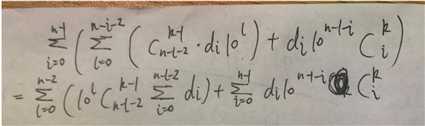 \sum_{i=0}^{n-1} ( \sum_{l=0}^{n-i-2} ( C_{n-l-2}^{k-1} · d_i 10^l ) + d_i 10^{n-1-i} C_i^k )
= \sum_{l=0}^{n-2} ( 10^l C_{n-l-2}^{k-1} \sum_{i=0}^{n-l-2} d_i ) + \sum_{i=0}^{n-1} d_i 10^{n-1-i} C_i^k